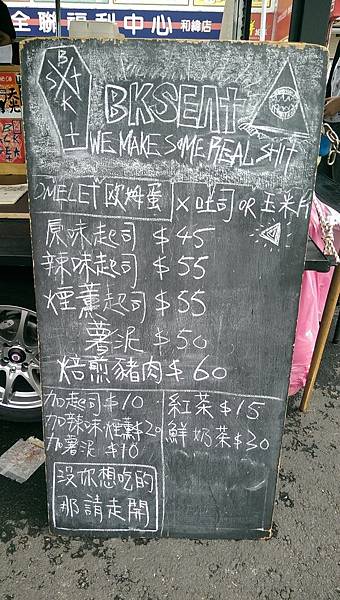 全聯福利中心 和緯店
B
S X t
K
t
BKSEnt
WE MAKE SOME REAL SHIT
OMELET 欧姆蛋 X 吐司 OR 玉米片
原味起司 $45
辣味起司 $55
煙薰起司 $55
薯泥 $50
焙煎豬肉 $60
加起司 $10
加辣味煙薰 $20
加薯泥 $10
紅茶 $15
鮮奶茶 $30
沒你想吃的
那請走開